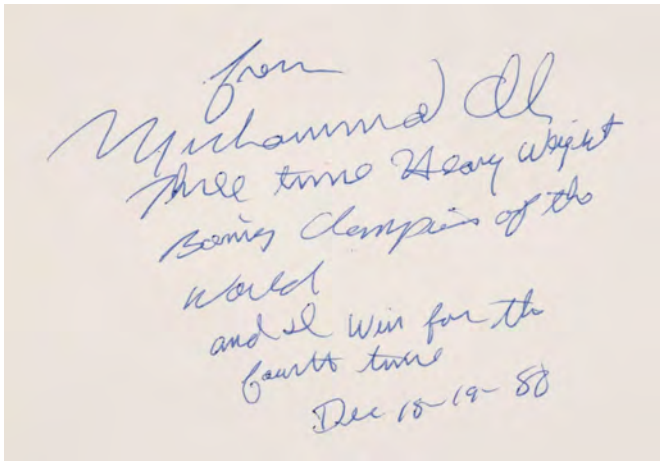 from
Muhammad Ali
Three time Heavy Weight
Boxing Champion of the
World
and I Win for the
fourth time
Dec 18-19-80